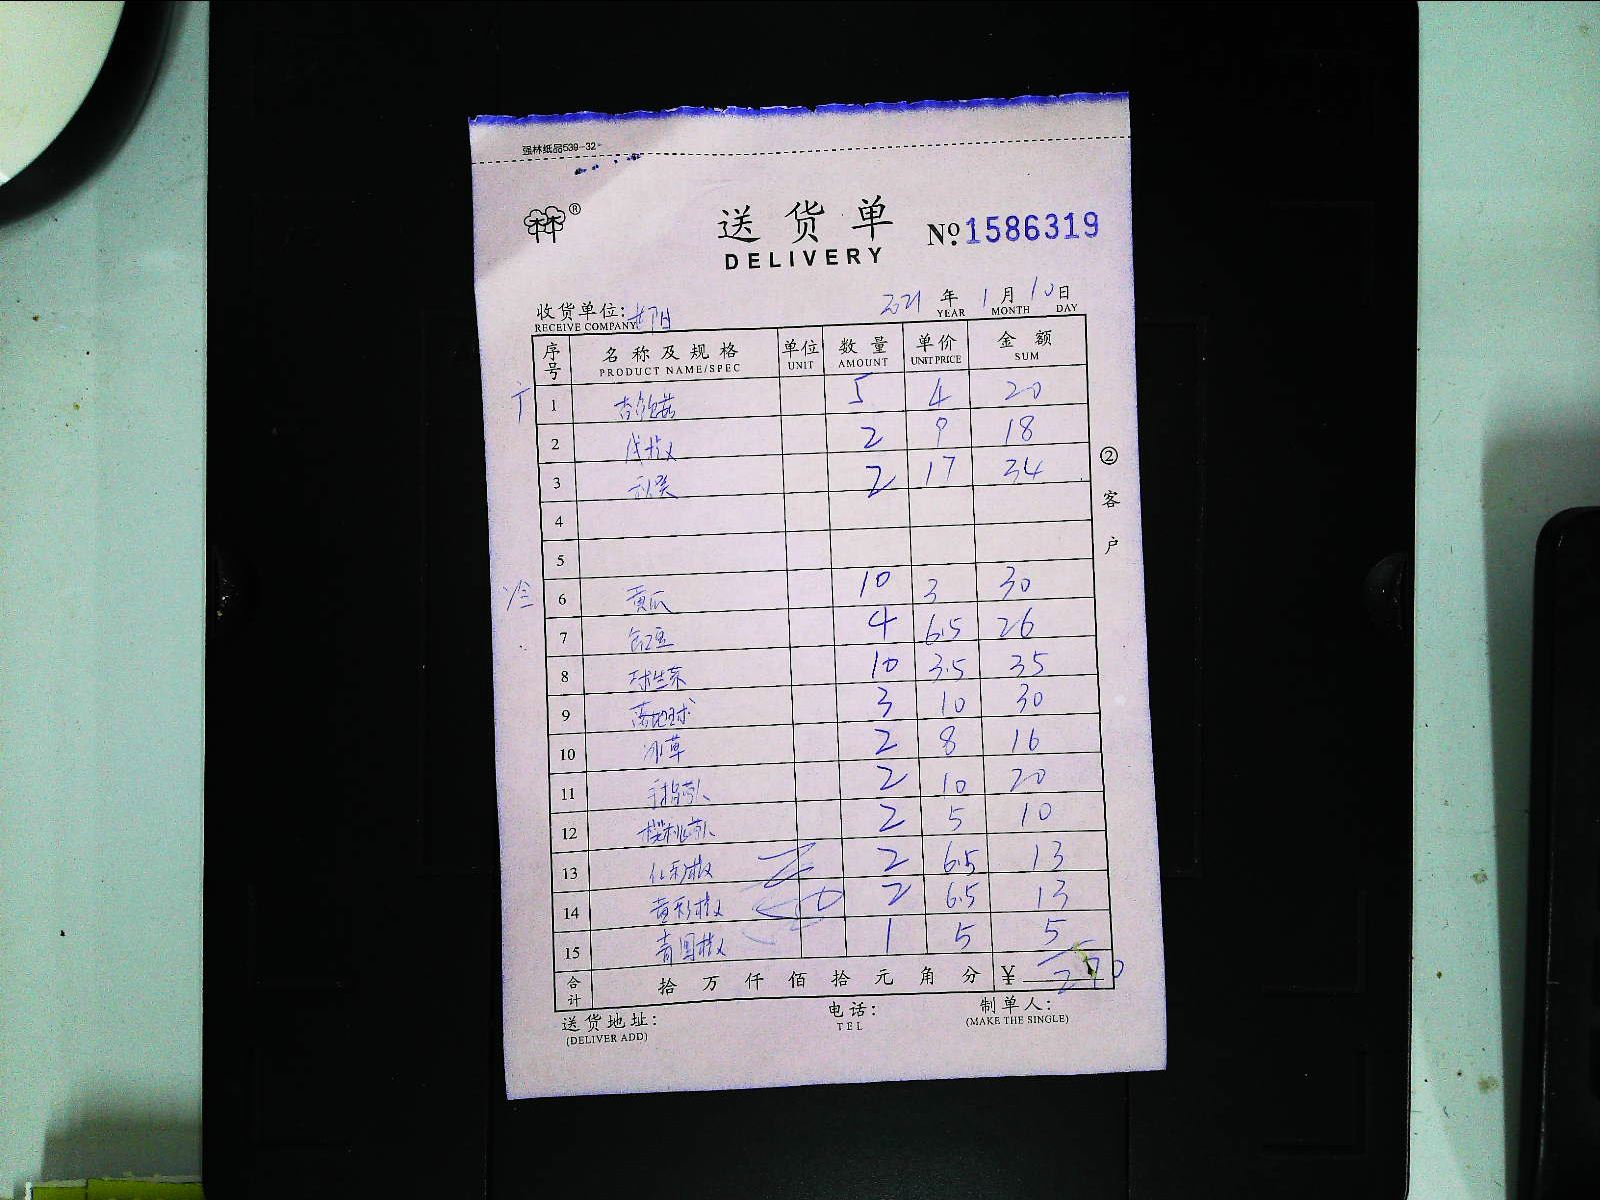 强林纸品539-32
林林®
送货单 No.1586319
DELIVERY
收货单位: 2021年1月10日
RECEIVE COMPANY YEAR MONTH DAY
序号 名称及规格 单位 数量 单价 金额
PRODUCT NAME/SPEC UNIT AMOUNT UNIT PRICE SUM
1 杏鲍菇 5 4 20
2 2 9 18
3 2 17 34
4
5
冷 6 黄瓜 10 3 30
7 4 6.5 26
8 球生菜 10 3.5 35
9 3 10 30
10 冰草 2 8 16
11 2 10 20
12 2 5 10
13 红彩椒 2 6.5 13
14 黄彩椒 2 6.5 13
15 青圆椒 1 5 5
合计 拾万仟佰拾元角分 ¥270
送货地址: 电话: 制单人:
(DELIVER ADD) TEL (MAKE THE SINGLE)
②客户